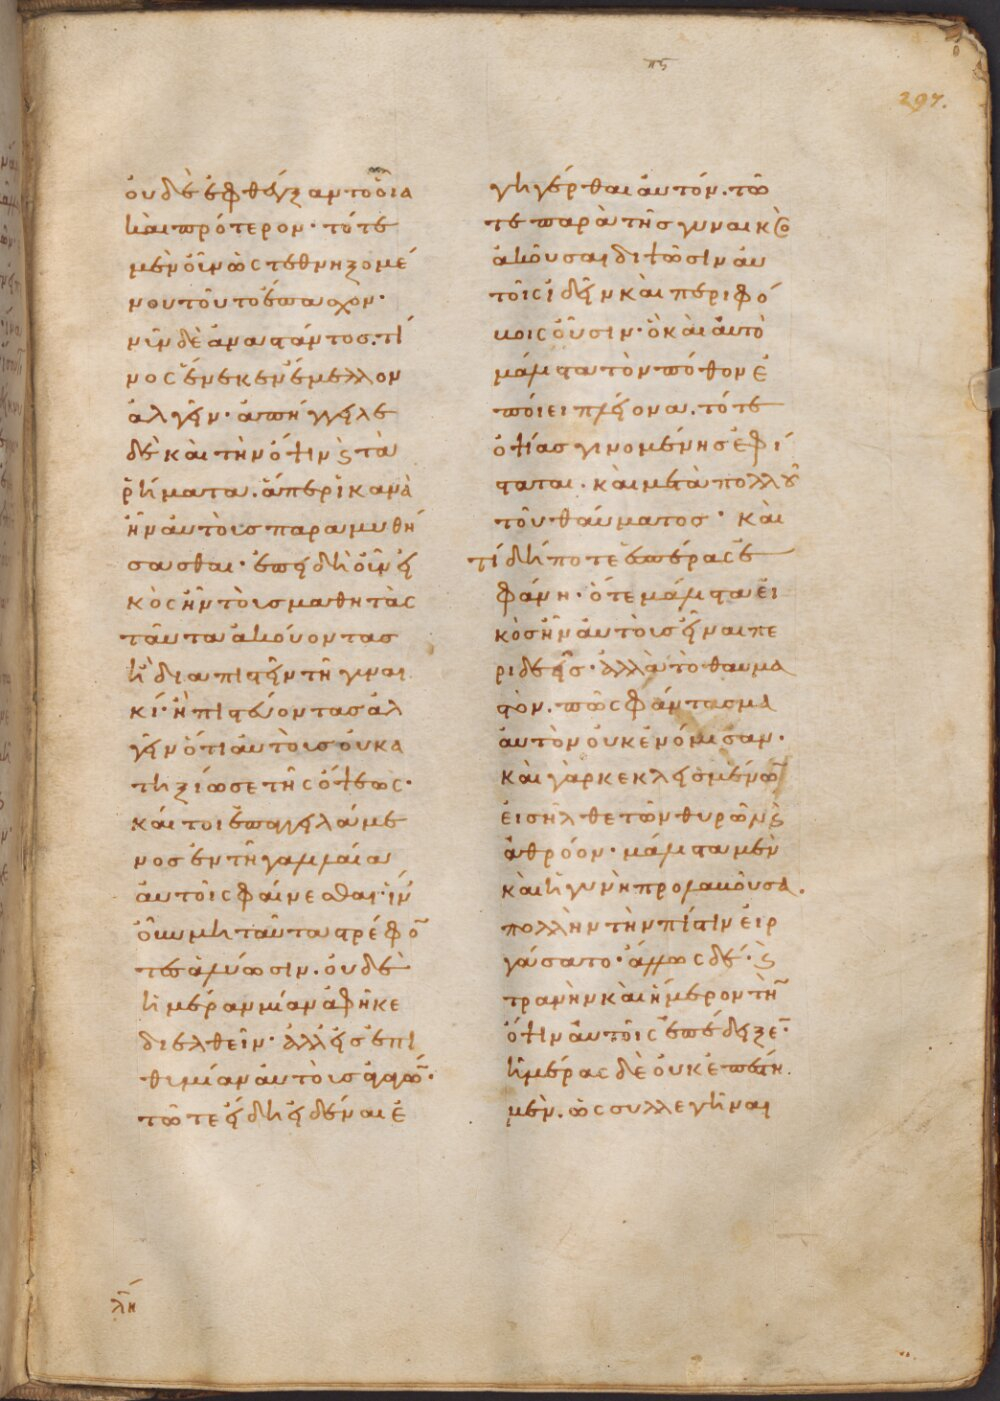 πς
297.
οὐδὲ ἐφθέγξαντο οἷα
καὶ πρότερον· τότε
μὲν οὖν ὡς τεθνηξομέ
νου τοῦτο ἔπασχον·
νῦν δὲ ἀναστάντος. τί
νος ἕνεκεν ἔμελλον
ἀλγεῖν· ἀπήγγειλε
δὲ καὶ τὴν ὄψιν ϗ τὰ
ῥήματα. ἅπερ ἱκανὰ
ἦν αὐτοὺς παραμυθή
σασθαι· ἐπειδὴ οὖν εἰ
κὸς ἦν τοὺς μαθητὰς
ταῦτα ἀκούοντας
ἢ διαπιστεῖν τῇ γυναι
κί· ἢ πιστεύοντας ἀλ
γεῖν ὅτι αὐτοὺς οὐ κα
τηξίωσε τῆς ὄψεως·
καίτοι ἐπαγγειλάμε
νος ἐν τῇ γαλιλαία
αὐτοῖς φαίνεσθαι· ἵν
οὖν μὴ ταῦτα στρέφο̅
τες ἀλύωσιν. οὐδὲ
ἡμέραν μίαν ἀφῆκε
διελθεῖν· ἀλλ εἰς ἐπι
θυμίαν αὐτοὺς ἀγαγὼ̅·
τῶ τε ἤδη εἰδέναι ἐ
γηγέρθαι αὐτόν. τῶ
τε παρὰ τῆς γυναικὸς
ἀκοῦσαι διψῶσιν αὐ
τοῖς ἰδεῖν καὶ περιφό
βοις οὖσιν· ὃ καὶ αὐτὸ
μάλιστα τὸν πόθον ἐ
ποίει πλείονα. τότε
ὀψίας γινομένης ἐφί
σταται. καὶ μετὰ πολλοῦ
τοῦ θαύματος· καὶ
τί δήποτε ἑσπέρας ἐ
φάνη· ὅτε μάλιστα εἰ
κὸς ἦν αὐτοὺς εἶναι πε
ριδεεῖς· ἀλλὰ τὸ θαυμα
στὸν. πῶς φάντασμα
αὐτὸν οὐκ ἐνόμισαν·
καὶ γὰρ κεκλεισμένω̅
εἰσῆλθε τῶν θυρῶν ϗ
ἀθρόον· μάλιστα μὲν
καὶ ἡ γυνὴ προλαβοῦσα.
πολλὴν τὴν πίστιν εἰρ
γάσατο· ἄλλως δέ· ϗ
τρανὴν καὶ ἥμερον τὴ̅
ὄψιν αὐτοῖς ἐπέδειξε̅·
ἡμέρας δὲ οὐκ ἐπέστη
μὲν. ὡς συλλεγῆναι
λη